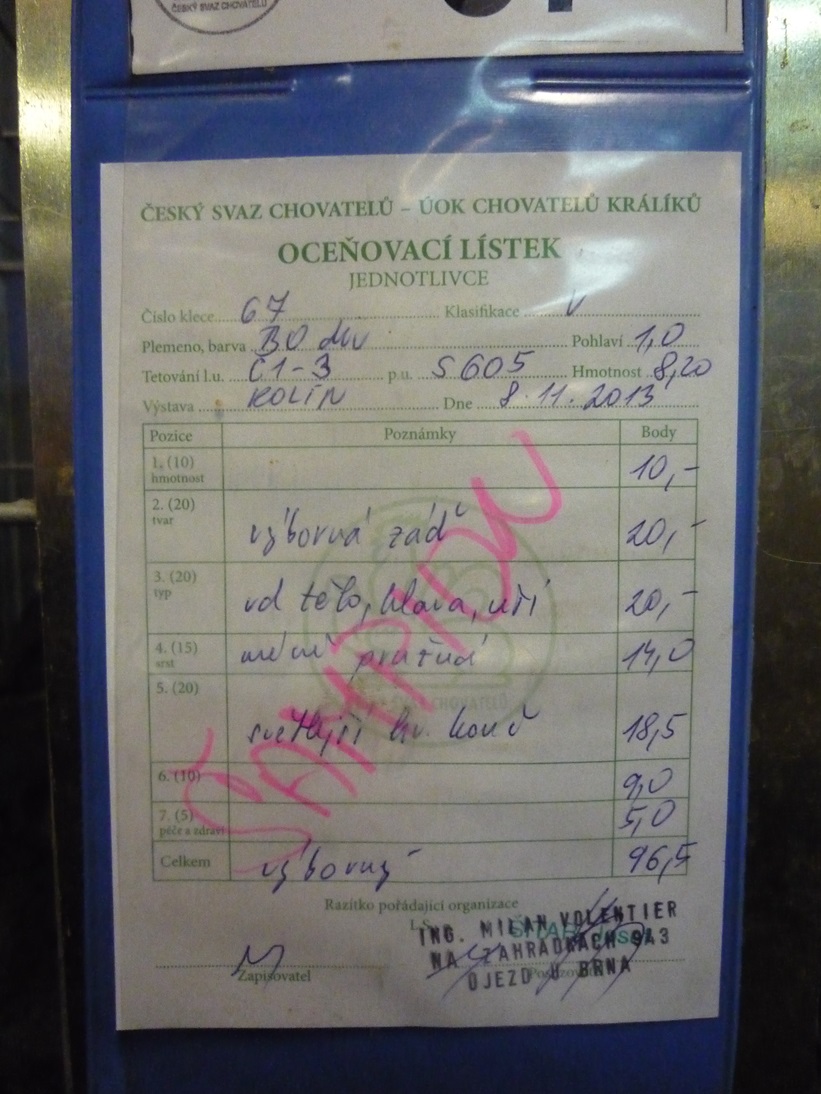 ČESKÝ SVAZ CHOVATELŮ
ČESKÝ SVAZ CHOVATELŮ – ÚOK CHOVATELŮ KRÁLÍKŮ
OCEŇOVACÍ LÍSTEK
JEDNOTLIVCE
Číslo klece 67 Klasifikace V
Plemeno, barva BO Pohlaví 1,0
Tetování l.u. C1-3 p.u. S 605 Hmotnost 8,20
Výstava KOLÍN Dne 8.11.2013
Pozice Poznámky Body
1. (10) 10,-
hmotnost
2. (20) výborná záď 20,-
tvar
3. (20) tělo, hlava, uši 20,-
typ
4. (15) méně pružná 14,0
srst
5. (20) světlejší 18,5
6. (10) 9,0
7. (5) 5,0
péče a zdraví
Celkem výborný 96,5
ŠAMPION
CHOVATELŮ
Razítko pořádající organizace
ING. MILAN VOLENTIER
NA ZAHRÁDKÁCH 943
ÚJEZD U BRNA
Zapisovatel